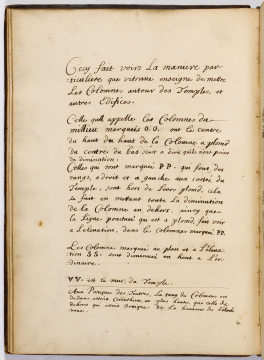 Cecy fait voirs la maniere par-
ticuliere que vitruve enseigne de mettre
les Colomnes autour des Temples, et
autres Edifices.
Celles quil appelle les Colomnes du
milieu marqueés O.O. ont le centre
du haut de la Colomne a plomb
du centre du bas, cest a dire quelle nont point
de diminution.
Celles qui sont marqueé P P. qui font des
rangs, a droit et a gauche aux costés du
Temple, sont hors de leurs plomb, cela
se fait en mettant toute la diminution
de la Colomne en dehors, ainsy que
la Ligne ponctueé qui est a plomb, fait voir
a Lelevation, dans les colomnes marqueé PP.
Les Colomnes marqueé au plan et a l'eleva-
tion SS. sont diminueé en haut a Lor-
dinaire.
VV. est le mur du Temple.
Aux Portiques des Theatres, Le rang de Colomnes en
dedans, estoit Corinthien, et plus haute que celle de
dehors qui estoit Dorique de la hauteur de